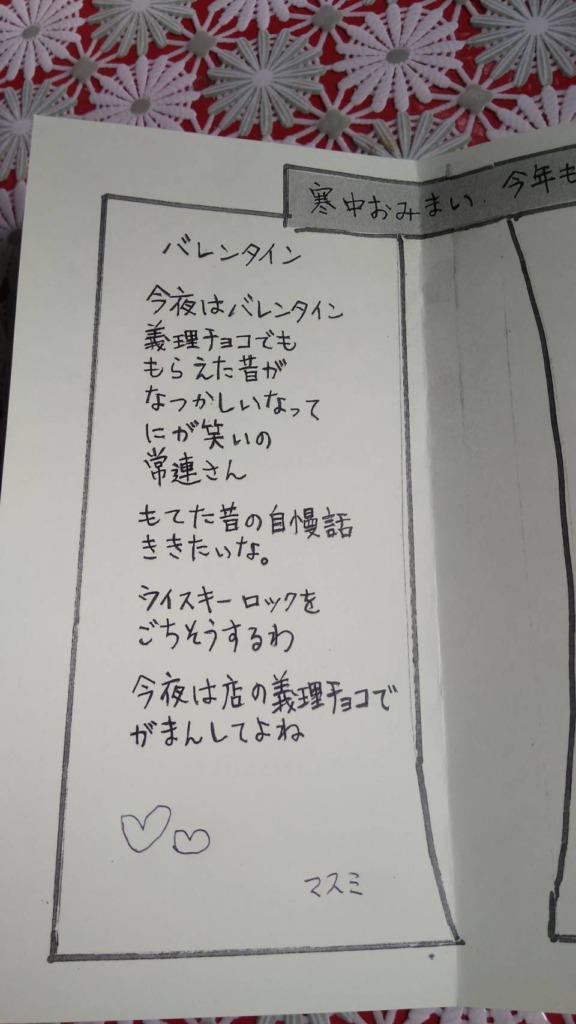 寒中おみまい. 今年も
バレンタイン
今夜はバレンタイン
義理チョコでも
もらえた昔が
なつかしいなって
にが笑いの
常連さん
もてた昔の自慢話
ききたいな。
ウイスキーロックを
ごちそうするわ
今夜は店の義理チョコで
がまんしてよね
マスミ